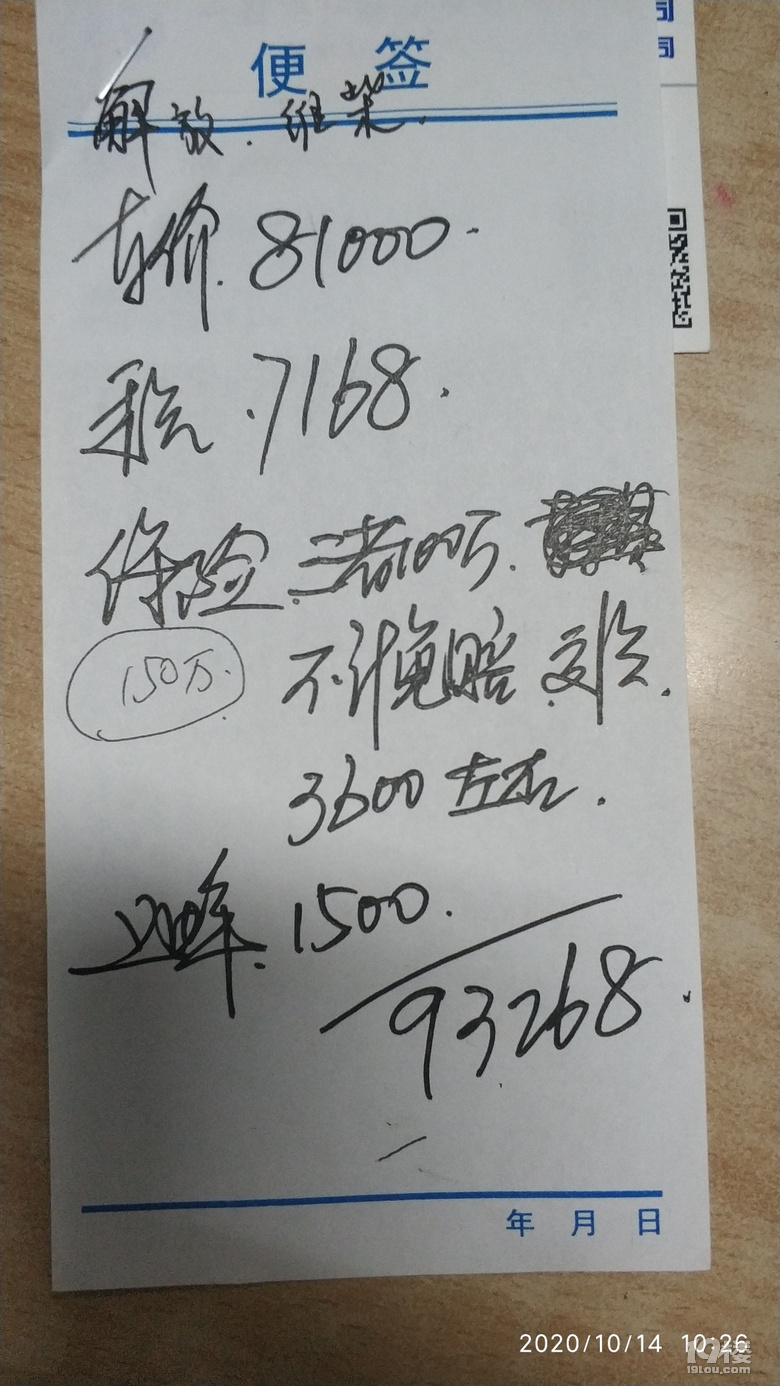 司
司
便签
解放.维柴.
车价.81000.
税.7168.
保险.三者100万.
150万.
不计免赔.交险.
3600左右.
上牌.1500.
93268.
年 月 日
2020/10/14 10:26
19楼
19lou.com